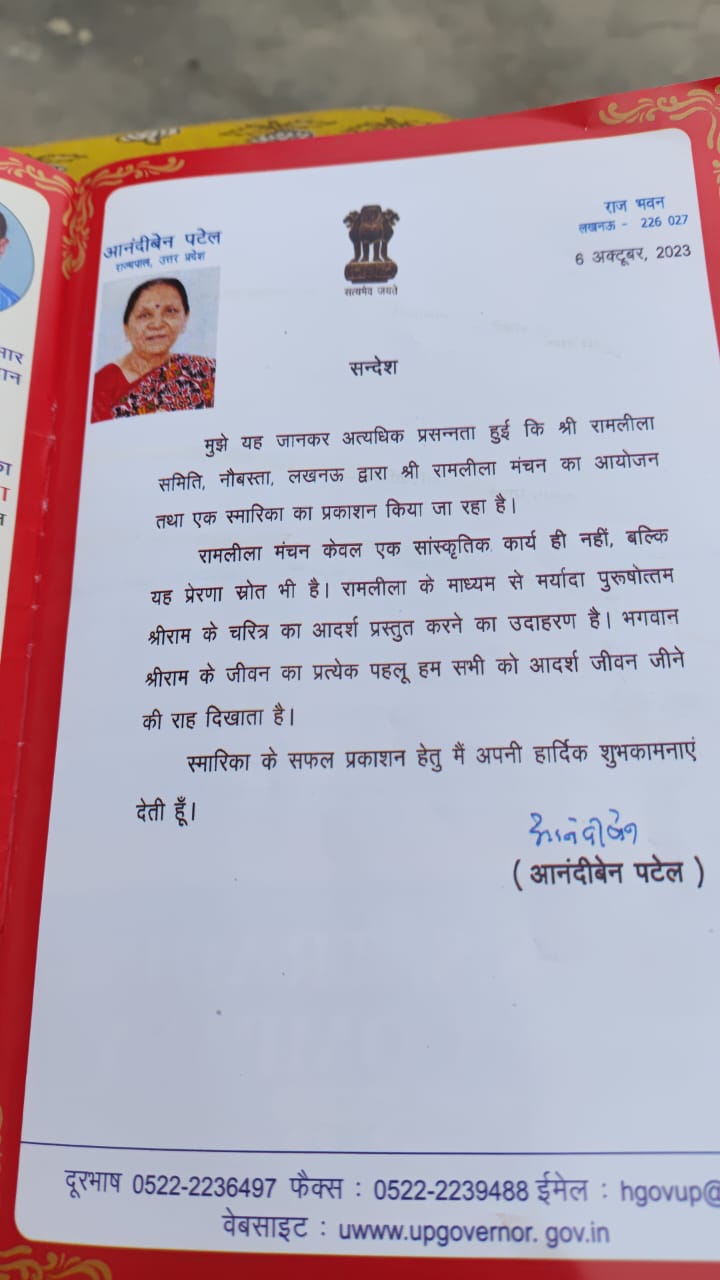 आनंदीबेन पटेल
राज्यपाल, उत्तर प्रदेश
सत्यमेव जयते
राज भवन
लखनऊ - 226 027
6 अक्टूबर, 2023
सन्देश
मुझे यह जानकर अत्यधिक प्रसन्नता हुई कि श्री रामलीला
समिति, नौबस्ता, लखनऊ द्वारा श्री रामलीला मंचन का आयोजन
तथा एक स्मारिका का प्रकाशन किया जा रहा है।
रामलीला मंचन केवल एक सांस्कृतिक कार्य ही नहीं, बल्कि
यह प्रेरणा स्रोत भी है। रामलीला के माध्यम से मर्यादा पुरूषोत्तम
श्रीराम के चरित्र का आदर्श प्रस्तुत करने का उदाहरण है। भगवान
श्रीराम के जीवन का प्रत्येक पहलू हम सभी को आदर्श जीवन जीने
की राह दिखाता है।
स्मारिका के सफल प्रकाशन हेतु मैं अपनी हार्दिक शुभकामनाएं
देती हूँ।
आनंदीबेन
( आनंदीबेन पटेल )
दूरभाष 0522-2236497 फैक्स : 0522-2239488 ईमेल : hgovup@
वेबसाइट : uwww.upgovernor. gov.in